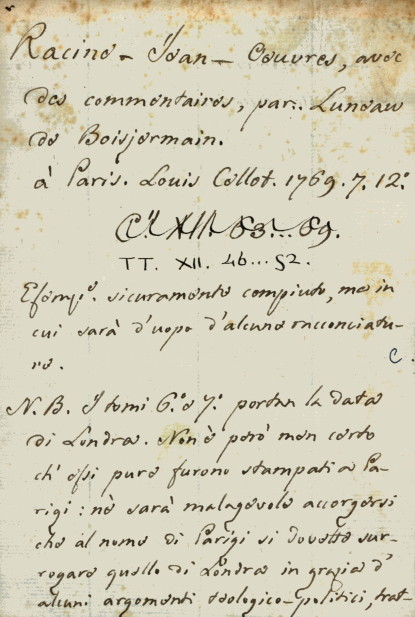 Racine - Jean - Oeuvres, avec
des commentaires, par.. Luneau
de Boisjermain.
à Paris. Louis Cellot. 1769. 7. 12.°
C. XII. 83... 89.
TT. XII. 46...52.
Esemp.° sicuramente compiuto, ma in
cui sarà d'uopo d'alcune racconciatu-
re.
C.
N. B. I tomi 6.° e 7.° portan la data
di Londra. Non è però men certo
ch' essi pure furono stampati a Pa-
rigi: nè sarà malagevole accorgersi
che al nome di Parigi si dovette sur-
rogare quello di Londra in grazia d'
alcuni argomenti teologico-politici, trat-